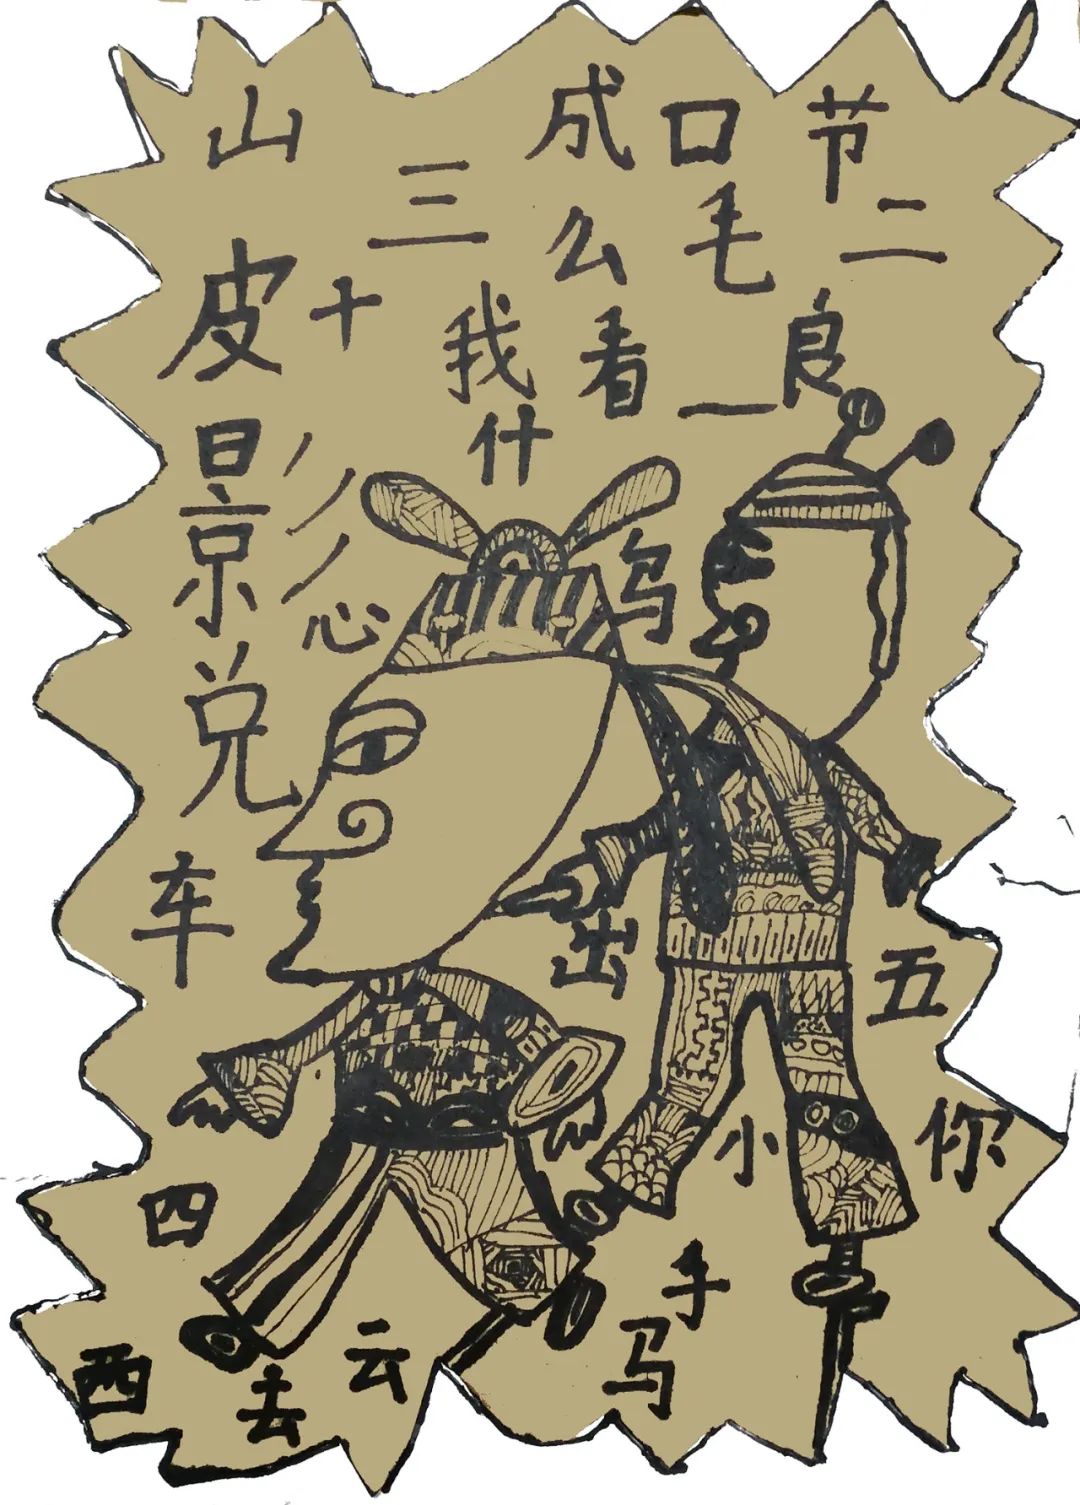 山
三
成
口
节
毛
二
么
皮
十
我
看
一
良
什
影
心
兑
车
出
五
小
你
四
手
马
西
去
云